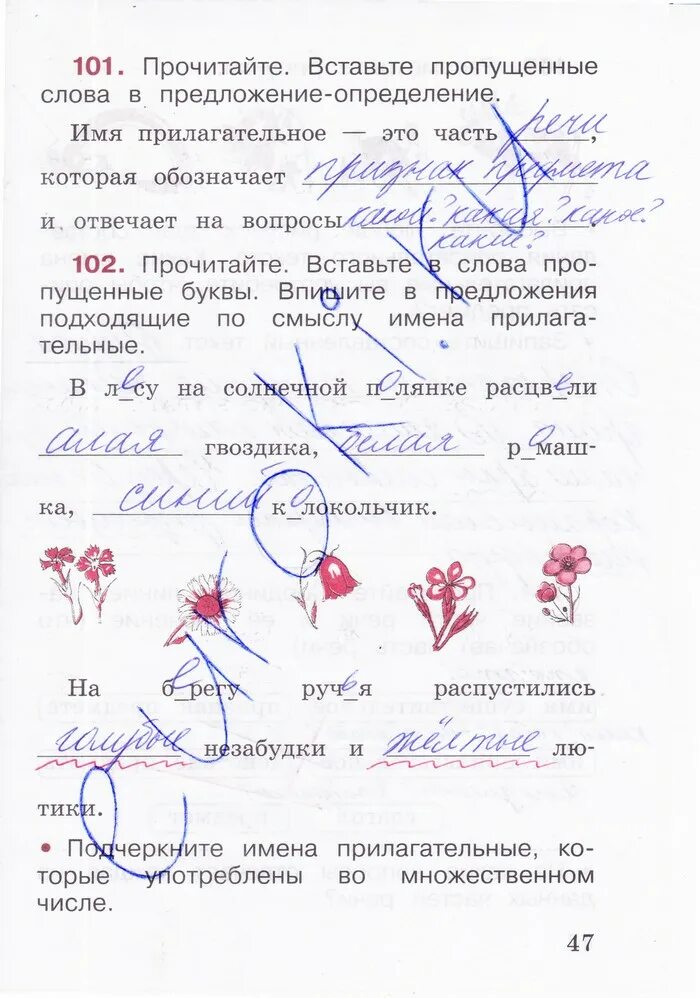 101. Прочитайте. Вставьте пропущенные
слова в предложение-определение.
Имя прилагательное — это часть речи,
которая обозначает признак предмета
и отвечает на вопросы какой? какая? какое?
какие? .
102. Прочитайте. Вставьте в слова про-
пущенные буквы. Впишите в предложения
подходящие по смыслу имена прилага-
тельные.
В лесу на солнечной полянке расцвели
алая гвоздика, белая ромаш-
ка, синий колокольчик.
На берегу ручья распустились
голубые незабудки и жёлтые лю-
тики.
• Подчеркните имена прилагательные, ко-
торые употреблены во множественном
числе.
47